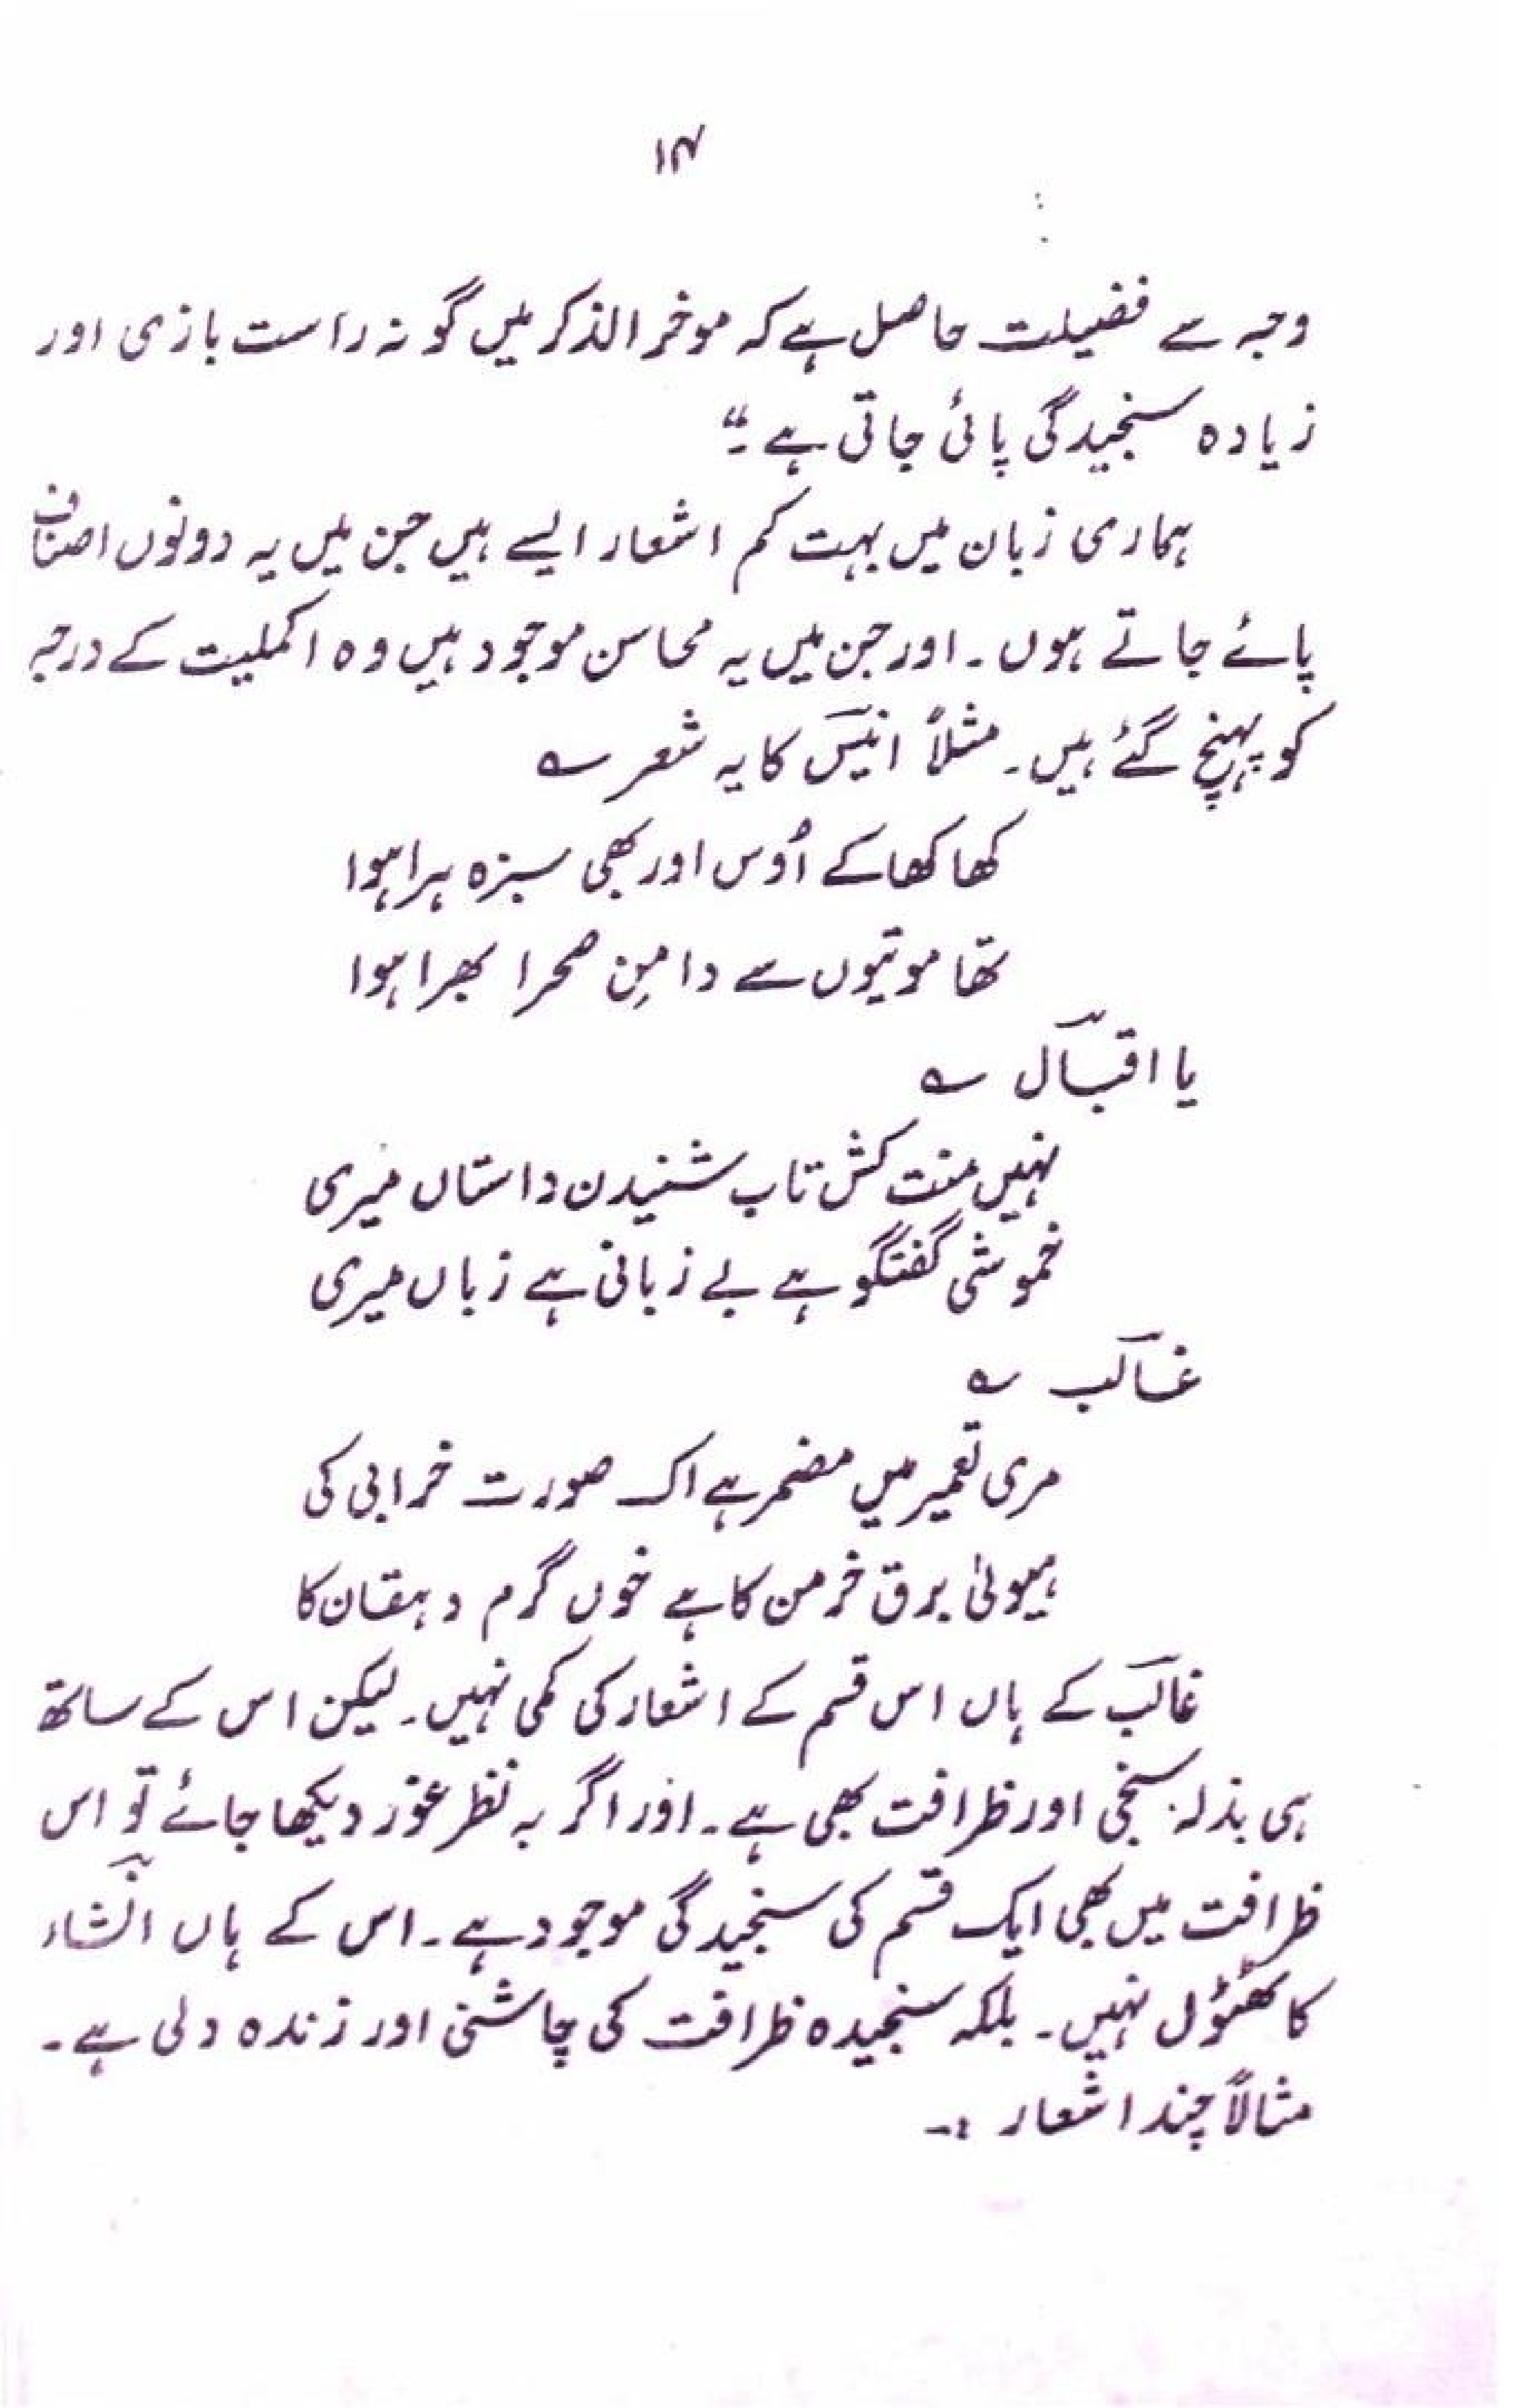 ۱۴
وجہ سے فضیلت حاصل ہے کہ موخر الذکر میں گونہ راست بازی اور
زیادہ سنجیدگی پائی جاتی ہے۔“
ہماری زبان میں بہت کم اشعار ایسے ہیں جن میں یہ دونوں اصناف
پائے جاتے ہوں۔ اور جن میں یہ محاسن موجود ہیں وہ اکملیت کے درجہ
کو پہنچ گئے ہیں۔ مثلاً انیسؔ کا یہ شعر ؎
کھا کھا کے اُوس اور بھی سبزہ ہرا ہوا
تھا موتیوں سے دامنِ صحرا بھرا ہوا
یا اقبالؔ ؎
نہیں منت کش تاب شنیدن داستاں میری
خموشی گفتگو ہے بے زبانی ہے زباں میری
غالبؔ ؎
مری تعمیر میں مضمر ہے اک صورت خرابی کی
ہیولیٰ برق خرمن کا ہے خوں گرم دہقان کا
غالبؔ کے ہاں اس قسم کے اشعار کی کمی نہیں۔ لیکن اس کے ساتھ
ہی بذلہ سنجی اور ظرافت بھی ہے۔ اور اگر بہ نظر غور دیکھا جائے تو اس
ظرافت میں بھی ایک قسم کی سنجیدگی موجود ہے۔ اس کے ہاں انشاءؔ
کا ٹھٹول نہیں۔ بلکہ سنجیدہ ظرافت کی چاشنی اور زندہ دلی ہے۔
مثالاً چند اشعار :-